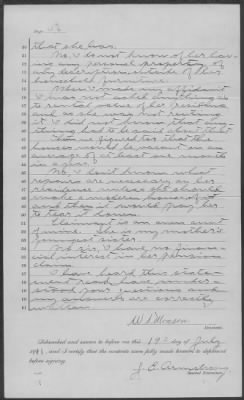 Page 52
that she has.
No. I do not know of her having any personal property of any description, outside of her household furniture.
When I made my affidavit I was not asked anything as to rental value of her residence and as she was not renting it I did not know that anything had to be said about that.
Then we figured that the houses would be vacant on an average of at least one month in a year.
No. I don't know what repairs are necessary on her residence unless she should make a modern home of it and then it would pay her to tear it down.
Claimant is an own aunt of mine. She is my mother's youngest sister.
No sir, I have no financial interest in her pension claim.
I have heard this statement read, have understood your questions and my answers are correctly written.
W S Moson
Deponent.
Subscribed and sworn to before me this 19th day of July
191 , and I certify that the contents were fully made known to deponent
before signing.
J. E. Armstrong
Special Examiner.